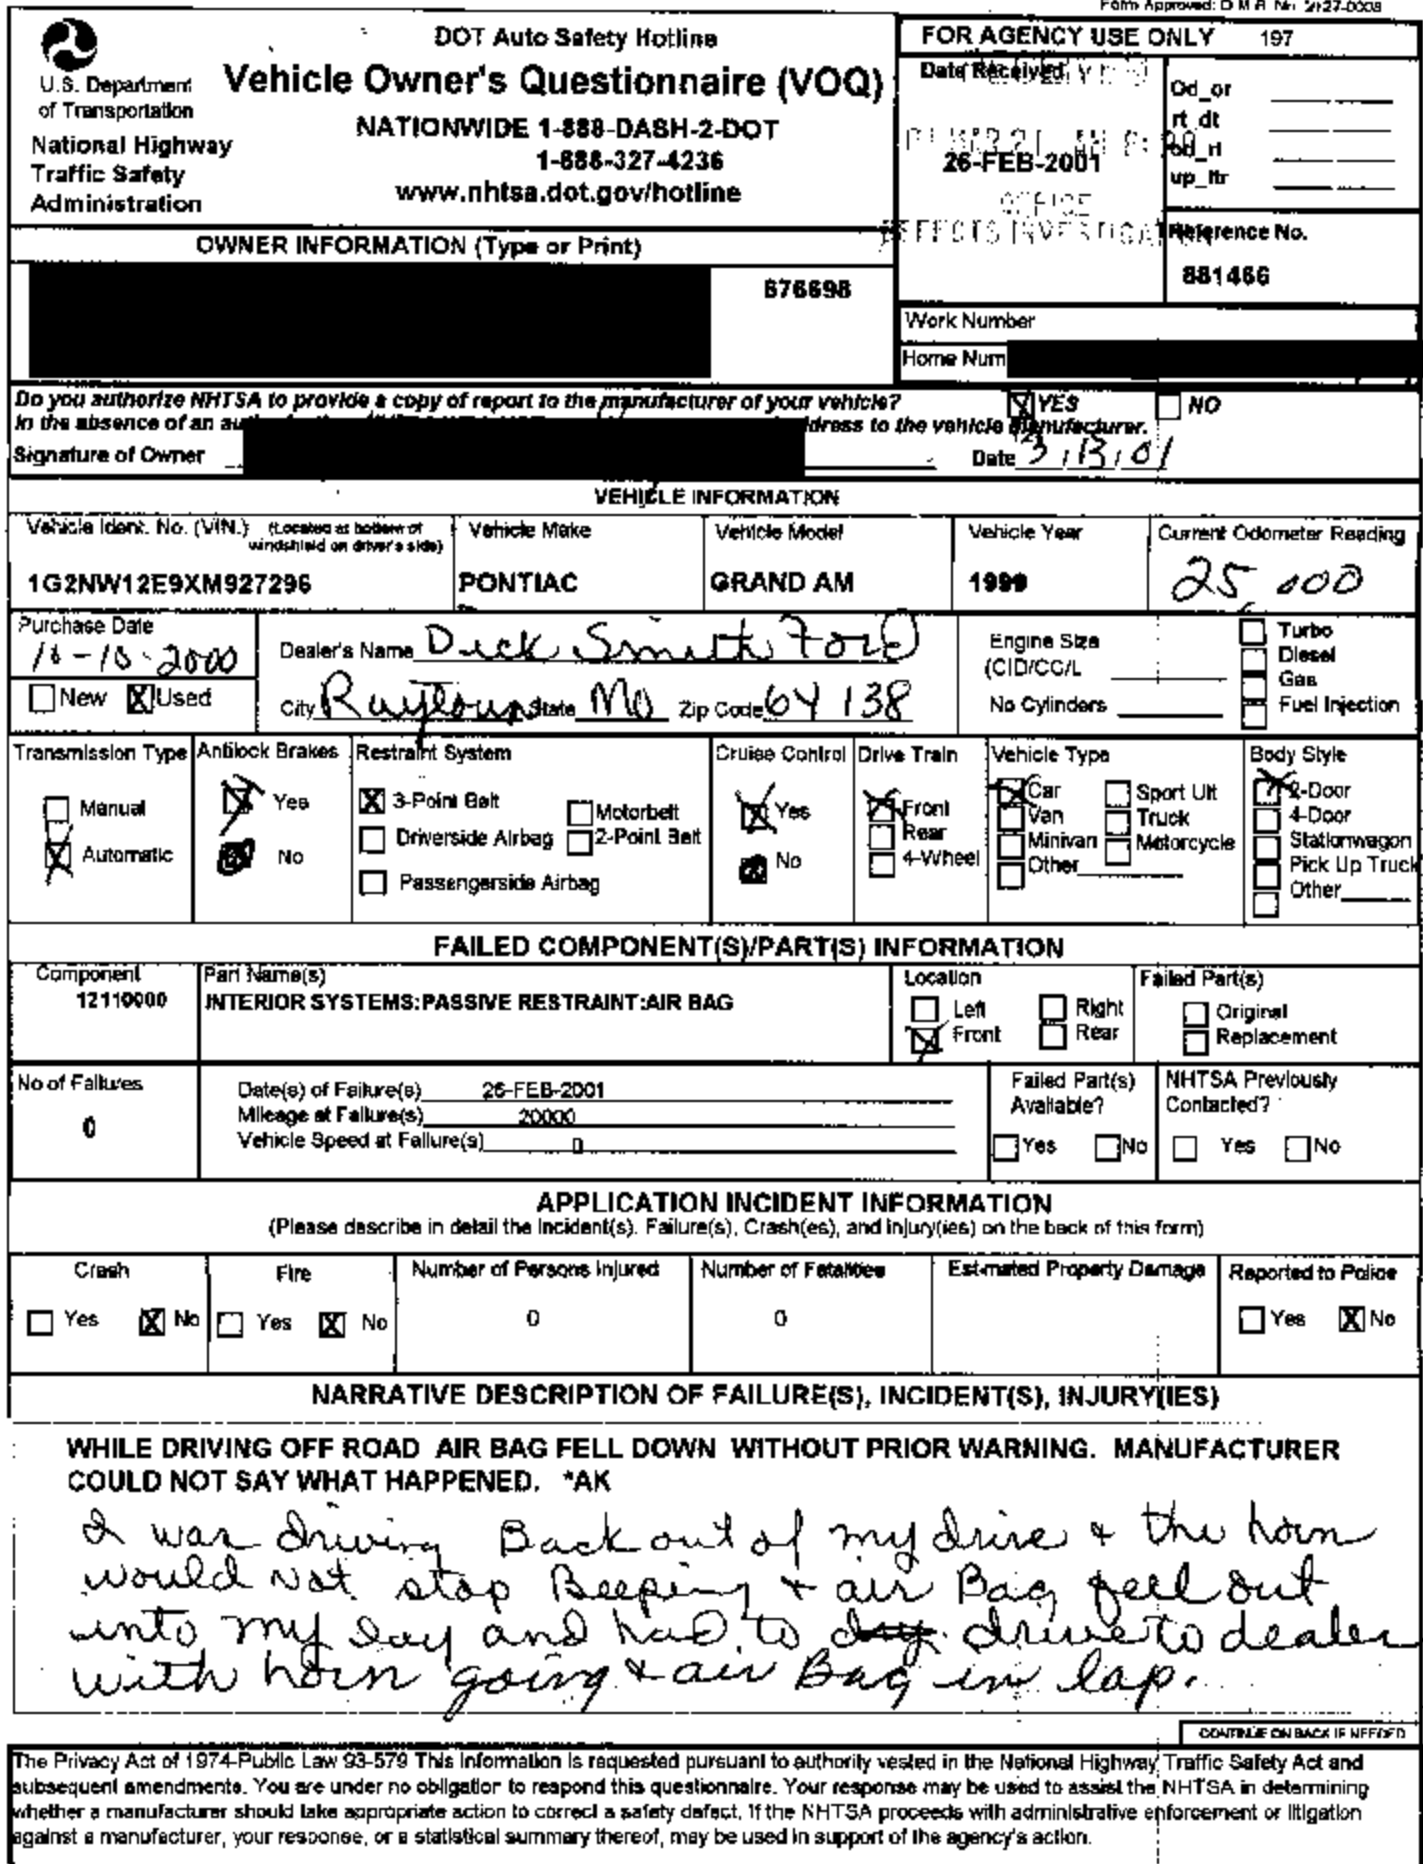 Form Approved: O.M.B. No. 2127-0008
U.S. Department
of Transportation
National Highway
Traffic Safety
Administration
DOT Auto Safety Hotline
Vehicle Owner's Questionnaire (VOQ)
NATIONWIDE 1-888-DASH-2-DOT
1-888-327-4236
www.nhtsa.dot.gov/hotline
FOR AGENCY USE ONLY 197
Date Received
26-FEB-2001
OFFICE
DEFECTS INVESTIGATION
Od_or
rt_dt
od_rt
up_ltr
Reference No.
881466
OWNER INFORMATION (Type or Print)
676698
Work Number
Home Num
Do you authorize NHTSA to provide a copy of report to the manufacturer of your vehicle? YES NO
In the absence of an au dress to the vehicle manufacturer.
Signature of Owner Date 3/13/01
VEHICLE INFORMATION
Vehicle Ident. No. (VIN.) (Located at bottom of windshield on driver's side) Vehicle Make Vehicle Model Vehicle Year Current Odometer Reading
1G2NW12E9XM927296 PONTIAC GRAND AM 1999 25,000
Purchase Date
10-10-2000
New Used
Dealer's Name Dick Smith Ford
City Raytown State Mo Zip Code 64138
Engine Size
(CID/CC/L
No Cylinders
Turbo
Diesel
Gas
Fuel Injection
Transmission Type
Manual
Automatic
Antilock Brakes
Yes
No
Restraint System
3-Point Belt
Motorbelt
Driverside Airbag
2-Point Belt
Passengerside Airbag
Cruise Control
Yes
No
Drive Train
Front
Rear
4-Wheel
Vehicle Type
Car
Sport Ult
Van
Truck
Minivan
Motorcycle
Other
Body Style
2-Door
4-Door
Stationwagon
Pick Up Truck
Other
FAILED COMPONENT(S)/PART(S) INFORMATION
Component
12110000
Part Name(s)
INTERIOR SYSTEMS:PASSIVE RESTRAINT:AIR BAG
Location
Left Right
Front Rear
Failed Part(s)
Original
Replacement
No of Failures
0
Date(s) of Failure(s) 26-FEB-2001
Mileage at Failure(s) 20000
Vehicle Speed at Failure(s) 0
Failed Part(s)
Available?
Yes No
NHTSA Previously
Contacted?
Yes No
APPLICATION INCIDENT INFORMATION
(Please describe in detail the Incident(s), Failure(s), Crash(es), and injury(ies) on the back of this form)
Crash
Yes No
Fire
Yes No
Number of Persons Injured
0
Number of Fatalities
0
Estimated Property Damage
Reported to Police
Yes No
NARRATIVE DESCRIPTION OF FAILURE(S), INCIDENT(S), INJURY(IES)
WHILE DRIVING OFF ROAD AIR BAG FELL DOWN WITHOUT PRIOR WARNING. MANUFACTURER
COULD NOT SAY WHAT HAPPENED. *AK
I was driving Back out of my drive & the horn
would not stop Beeping & air Bag fell out
into my lay and had to drive to dealer
with horn going & air Bag in lap.
CONTINUE ON BACK IF NEEDED
The Privacy Act of 1974-Public Law 93-579 This information is requested pursuant to authority vested in the National Highway Traffic Safety Act and
subsequent amendments. You are under no obligation to respond this questionnaire. Your response may be used to assist the NHTSA in determining
whether a manufacturer should take appropriate action to correct a safety defect. If the NHTSA proceeds with administrative enforcement or litigation
against a manufacturer, your response, or a statistical summary thereof, may be used in support of the agency's action.